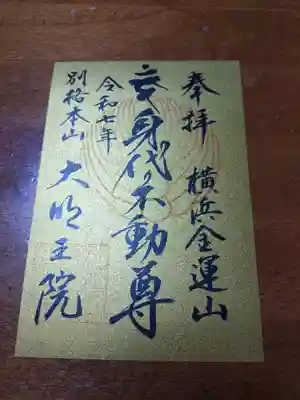 奉拝
横浜金運山
身代不動尊
令和七年
別格本山
大明王院